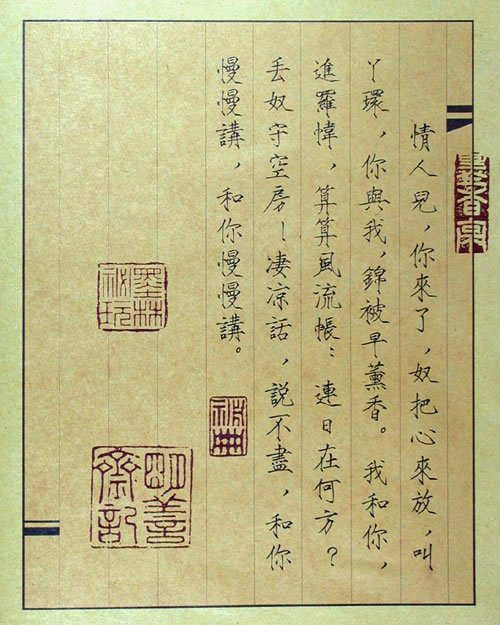 情人兒，你來了，奴把心來放，叫
丫環，你與我，錦被早薰香。我和你，
進羅幃，算算風流帳：連日在何方？
丟奴守空房！凄凉話，說不盡，和你
慢慢講，和你慢慢講。
墨林
祕玩
明善
齋記